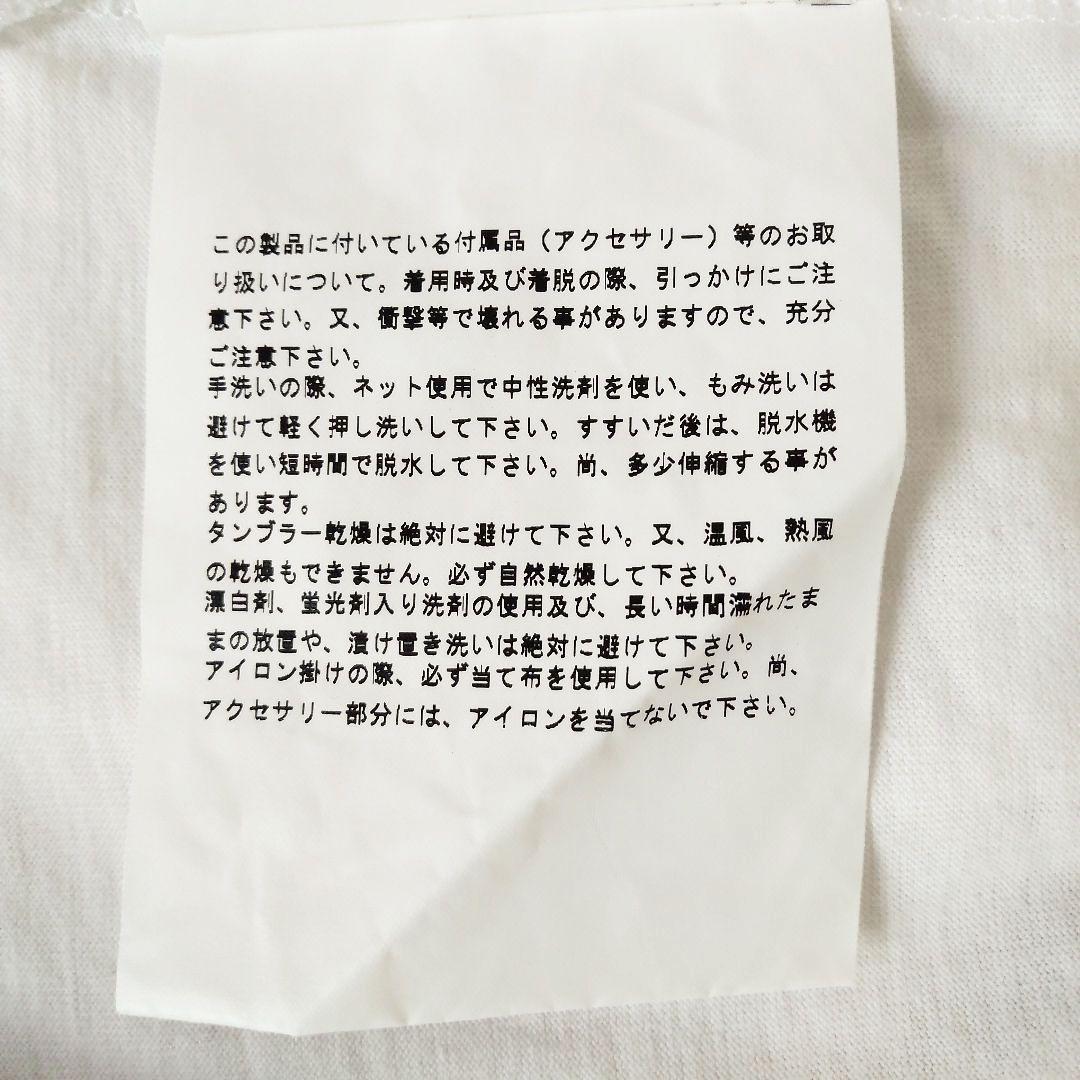 この製品に付いている付属品（アクセサリー）等のお取
り扱いについて。着用時及び着脱の際、引っかけにご注
意下さい。又、衝撃等で壊れる事がありますので、充分
ご注意下さい。
手洗いの際、ネット使用で中性洗剤を使い、もみ洗いは
避けて軽く押し洗いして下さい。すすいだ後は、脱水機
を使い短時間で脱水して下さい。尚、多少伸縮する事が
あります。
タンブラー乾燥は絶対に避けて下さい。又、温風、熱風
の乾燥もできません。必ず自然乾燥して下さい。
漂白剤、蛍光剤入り洗剤の使用及び、長い時間濡れたま
まの放置や、漬け置き洗いは絶対に避けて下さい。
アイロン掛けの際、必ず当て布を使用して下さい。尚、
アクセサリー部分には、アイロンを当てないで下さい。